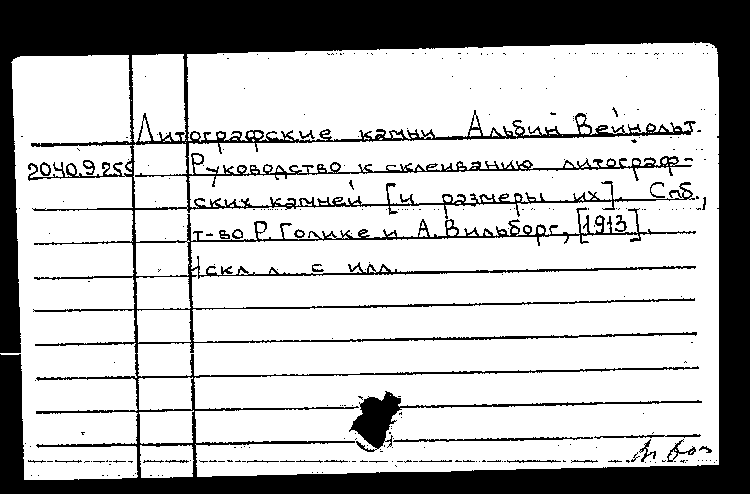 Литографские камни Альбин Вейнольт.
2040.9.255. Руководство к склеиванию литограф-
ских камней [и размеры их]. Спб.,
т-во Р. Голике и А. Вильборг, [1913].
1 скл. л. с илл.